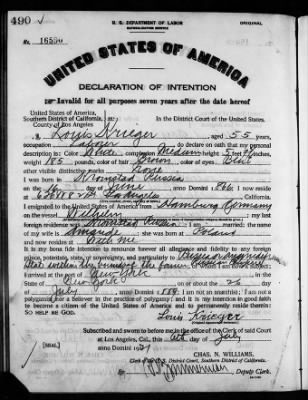 490 ✓
U. S. DEPARTMENT OF LABOR
NATURALIZATION SERVICE
ORIGINAL
No. 16550
UNITED STATES OF AMERICA
DECLARATION OF INTENTION
Invalid for all purposes seven years after the date hereof
United States of America,
Southern District of California,
County of Los Angeles
ss:
In the District Court of the United States.
I, Louis Krieger, aged 55 years,
occupation Laborer, do declare on oath that my personal
description is: Color White, complexion Medium, height 5 feet inches,
weight 185 pounds, color of hair Brown, color of eyes Blue
other visible distinctive marks None
I was born in Russia
on the 16 day of June, anno Domini 1 866; I now reside
at Los Angeles, California.
I emigrated to the United States of America from Hamburg Germany
on the vessel Wilhelm; my last
foreign residence was Russia; I am married; the name
of my wife is; she was born at Poland
and now resides at With me
It is my bona fide intention to renounce forever all allegiance and fidelity to any foreign
prince, potentate, state, or sovereignty, and particularly to
of whom I am now a subject;
I arrived at the port of New York, in the
State of New York, on or about the 26 day
of July, anno Domini 1 889; I am not an anarchist; I am not a
polygamist nor a believer in the practice of polygamy; and it is my intention in good faith
to become a citizen of the United States of America and to permanently reside therein:
SO HELP ME GOD.
Louis Krieger
Subscribed and sworn to before me in the office of the Clerk of said Court
at Los Angeles, Cal., this day of July
anno Domini 1921
[SEAL]
CHAS. N. WILLIAMS,
Clerk U. S. District Court, Southern District of California.
By Zimmerman, Deputy Clerk.